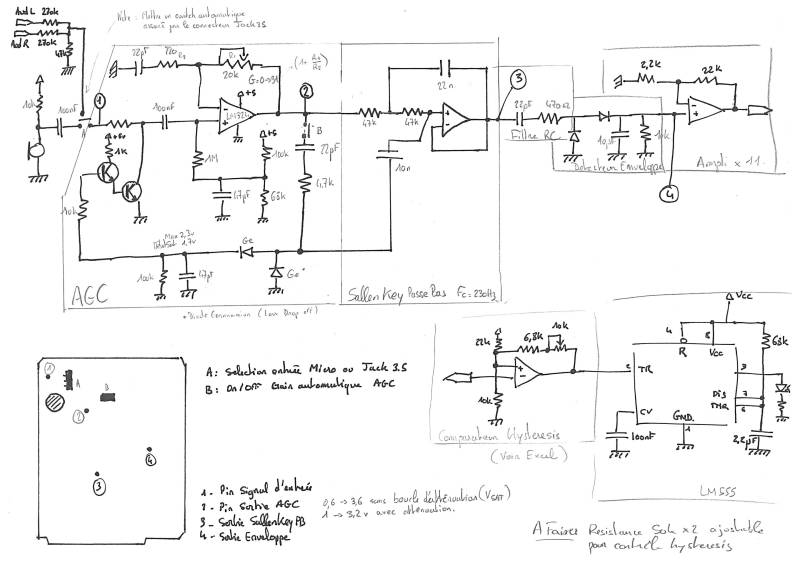 Aud L 270k
Aud R 270k
47k
Note : Mettre un switch automatique
assuré par le connecteur Jack 3.5
10k
100nF
1
+5v
1K
100nF
22µF
220
R1
R2
20k
G=0→91
(1+ R2/R1)
+5
LM324
1M
47µF
+5
100k
68k
2
B
22µF
4,7k
10k
Max 2,3v
1,7v
100k
47µF
Ge
Ge*
AGC
* Diode Germanium (Low Drop off)
47k
47k
22n
10n
Sallen Key Passe Bas Fc=230Hz
3
22µF
470Ω
Filtre RC
10µF
Detecteur Enveloppe
4
2,2k
22k
Ampli x 11.
1
A
B
2
3
4
A: Selection entrée Micro ou Jack 3.5
B: On/Off Gain automatique AGC
1 - Pin Signal d'entrée
2 - Pin Sortie AGC
3 - Sortie SallenKey PB
4 - Sortie Enveloppe
0,6 → 3,6 sans boucle d'atténuation (VSAT)
1 → 3,2v avec atténuation.
22k
6,8k
10k
10k
Comparateur Hysteresis
(Voir Excel)
Vcc
4
8
R
Vcc
68k
TR
3
Dis
7
THR
6
CV
GND
1
100nF
2,2µF
LM555
A Faire: Resistance 50k x2 ajustable
pour contrôle hysteresis